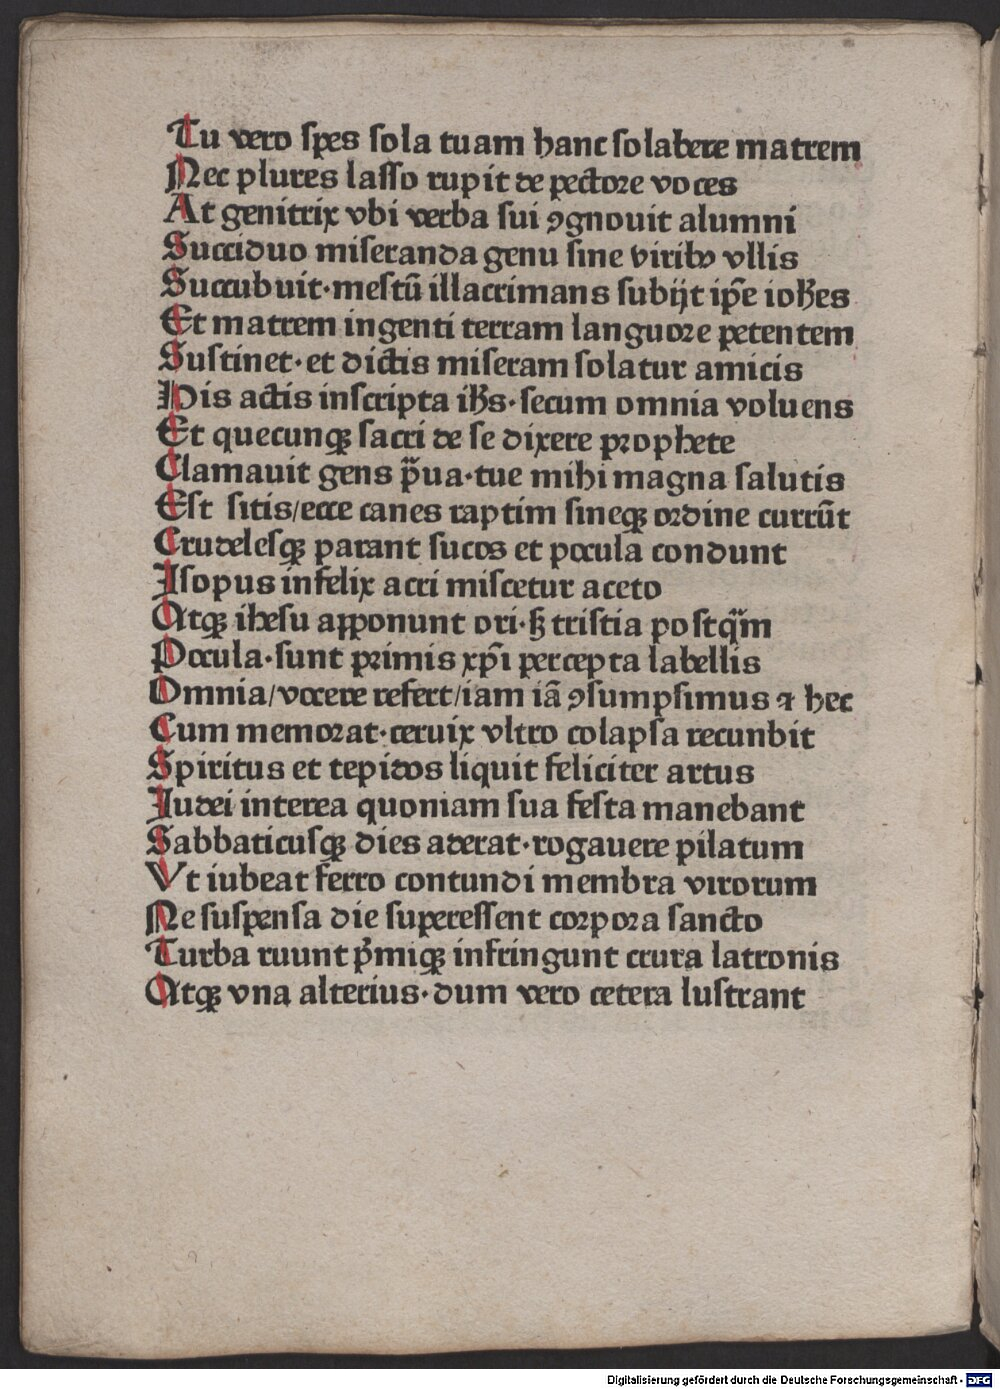 Tu vero spes sola tuam hanc solabere matrem
Nec plures lasso rupit de pectore voces
At genitrix vbi verba sui ꝯgnouit alumni
Succiduo miseranda genu sine viribꝰ vllis
Succubuit·mestū illacrimans subijt ip̄e ioħes
Et matrem ingenti terram languore petentem
Sustinet·et dictis miseram solatur amicis
His actis inscripta iħs·secum omnia voluens
Et quecunqꝫ sacri de se dixere prophete
Clamauit gens p̄ua·tue mihi magna salutis
Est sitis/ecce canes raptim sineqꝫ ordine currūt
Crudelesqꝫ parant sucos et pocula condunt
Isopus infelix acri miscetur aceto
Atqꝫ ihesu apponunt ori·ꝭꝫ tristia postq̄m
Pocula·sunt primis xp̄i percepta labellis
Omnia/vocere refert/iam iā ꝯsumpsimus ⁊ hec
Cum memorat·ceruix vltro colapsa recunbit
Spiritus et tepidos liquit feliciter artus
Iudei interea quoniam sua festa manebant
Sabbaticusqꝫ dies aderat·rogauere pilatum
Vt iubeat ferro contundi membra virorum
Ne suspensa die superessent corpora sancto
Turba ruunt p̄miqꝫ infringunt crura latronis
Atqꝫ vna alterius·dum vero cetera lustrant
Digitalisierung gefördert durch die Deutsche Forschungsgemeinschaft - DFG